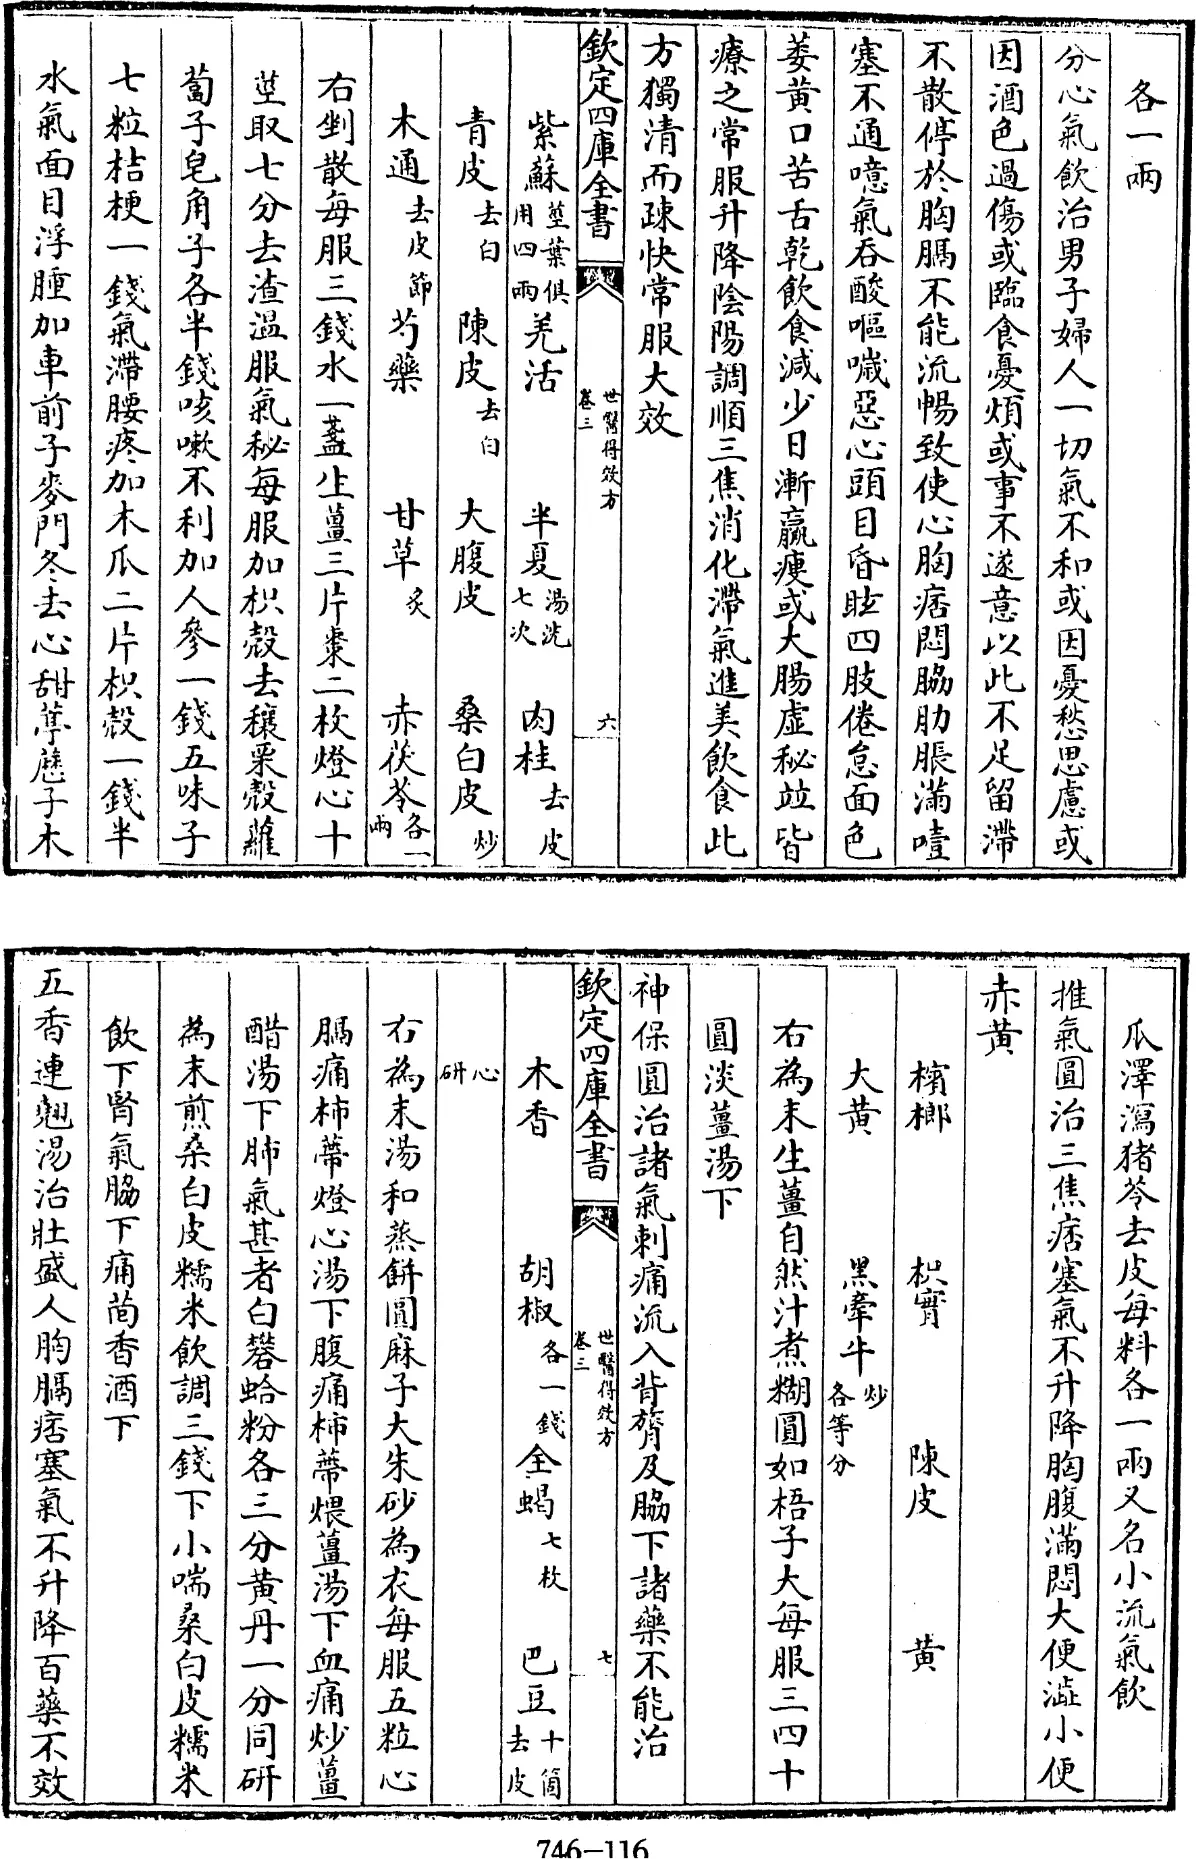 各一兩
分心氣飲治男子婦人一切氣不和或因憂愁思慮或
因酒色過傷或臨食憂煩或事不遂意以此不足留滯
不散停於胸膈不能流暢致使心胸痞悶脇肋脹滿噎
塞不通噫氣吞酸嘔噦惡心頭目昏眩四肢倦怠面色
萎黄口苦舌乾飲食減少日漸羸瘦或大腸虛秘竝皆
療之常服升降陰陽調順三焦消化滯氣進美飲食此
方獨清而疎快常服大效
欽定四庫全書 世醫得效方 卷三 六
紫蘇莖葉俱用四兩 羌活 半夏湯洗七次 肉桂去皮
青皮去白 陳皮去白 大腹皮 桑白皮炒
木通去皮節 芍藥 甘草炙 赤茯苓各一兩
右剉散每服三錢水一盞生薑三片棗二枚燈心十
莖取七分去渣温服氣秘每服加枳殼去穰栗殼蘿
蔔子皂角子各半錢咳嗽不利加人參一錢五味子
七粒桔梗一錢氣滯腰疼加木瓜二片枳殼一錢半
水氣面目浮腫加車前子麥門冬去心甜葶藶子木
瓜澤瀉猪苓去皮每料各一兩又名小流氣飲
推氣圓治三焦痞塞氣不升降胸腹滿悶大便澁小便
赤黄
檳榔 枳實 陳皮 黄
大黄 黑牽牛炒各等分
右為末生薑自然汁煮糊圓如梧子大每服三四十
圓淡薑湯下
神保圓治諸氣刺痛流入背膂及脇下諸藥不能治
欽定四庫全書 世醫得效方 卷三 七
木香 胡椒各一錢 全蝎七枚 巴豆十箇去皮
心研
右為末湯和蒸餅圓麻子大朱砂為衣每服五粒心
膈痛柿蔕燈心湯下腹痛柿蔕煨薑湯下血痛炒薑
醋湯下肺氣甚者白礬蛤粉各三分黄丹一分同研
為末煎桑白皮糯米飲調三錢下小喘桑白皮糯米
飲下腎氣脇下痛茴香酒下
五香連翹湯治壯盛人胸膈痞塞氣不升降百藥不效
746-116